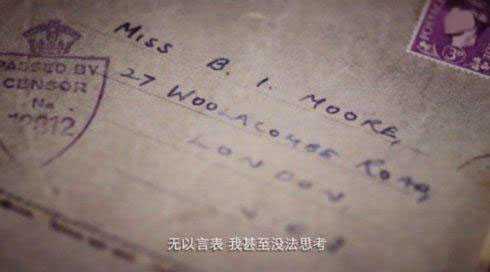 PASSED BY
CENSOR
No
MISS B. I. MOORE,
27 WOOLACOMBE ROAD,
LONDON
3D
无以言表 我甚至没法思考